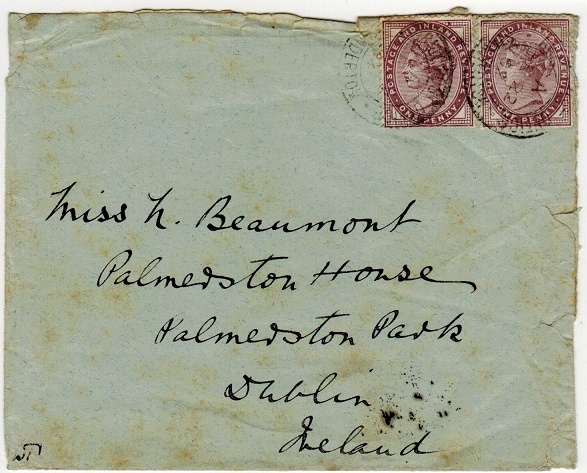 POSTAGE AND INLAND REVENUE
ONE PENNY
POSTAGE AND INLAND REVENUE
ONE PENNY
Miss N. Beaumont
Palmerston House
Palmerston Park
Dublin
Ireland